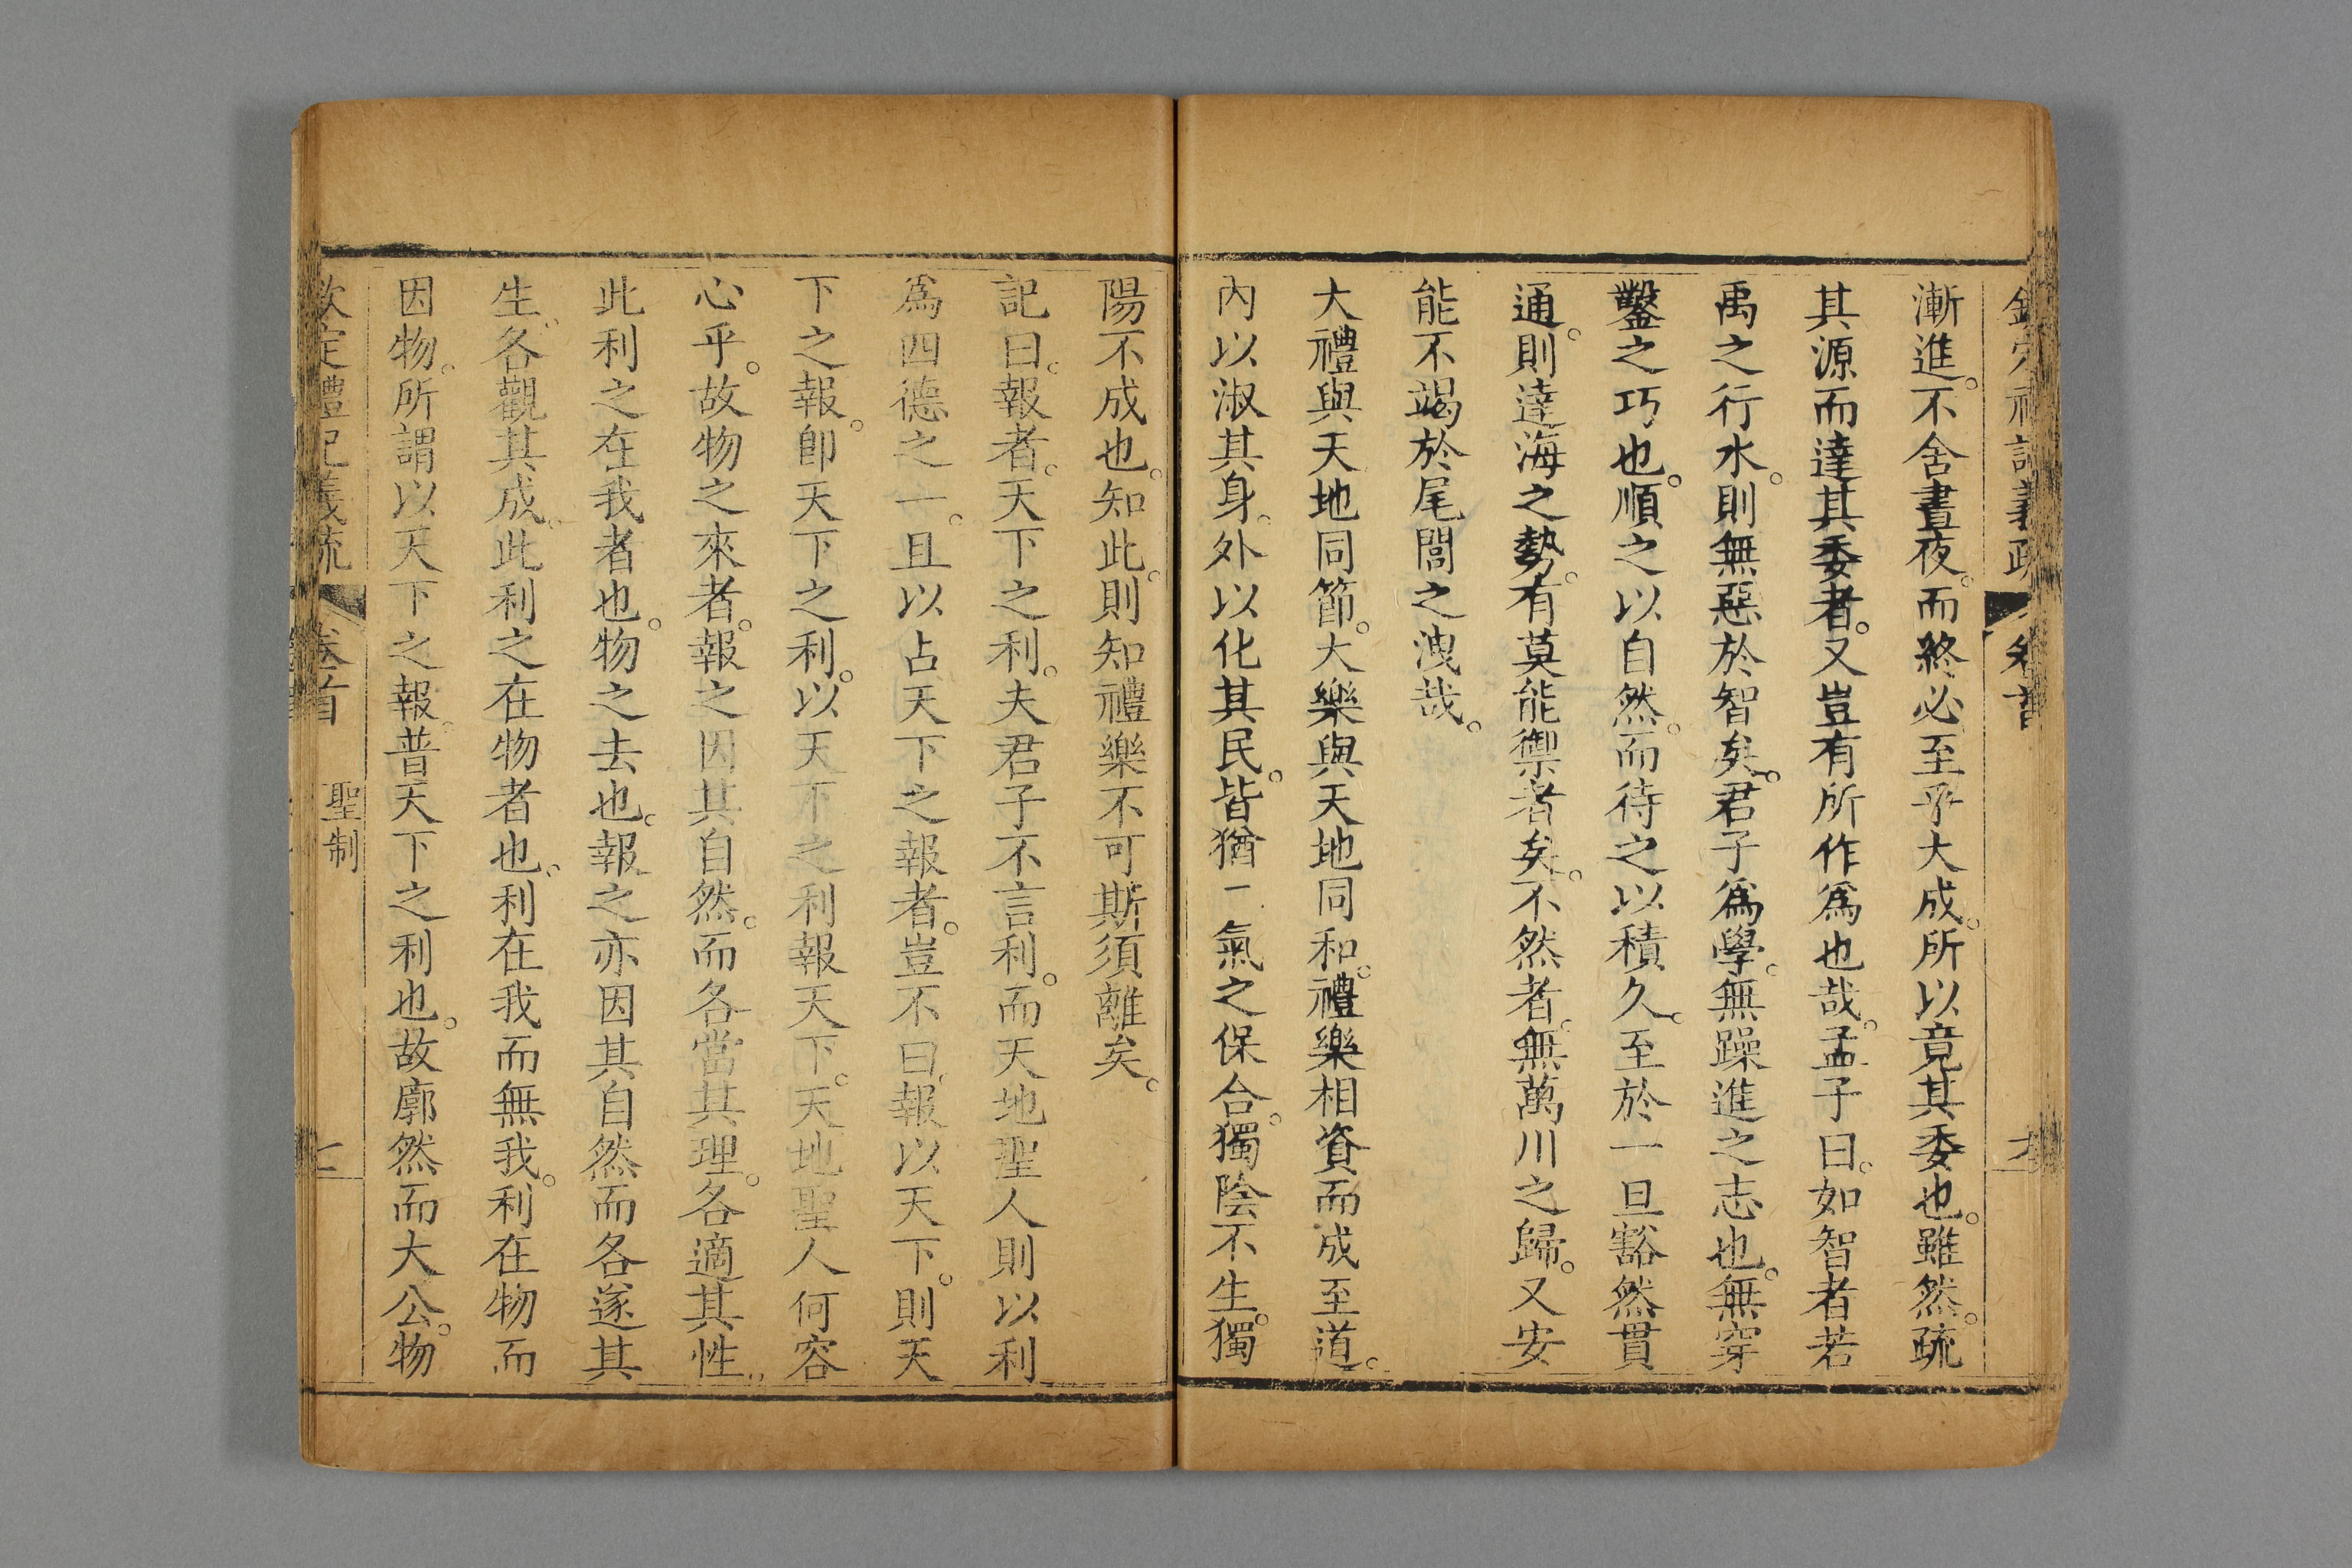 漸進。不舍晝夜。而終必至乎大成。所以竟其委也。雖然。疏
其源而達其委者。又豈有所作爲也哉。孟子曰。如智者若
禹之行水。則無惡於智矣。君子爲學。無躁進之志也。無穿
鑿之巧也。順之以自然。而待之以積久。至於一旦豁然貫
通。則達海之勢。有莫能禦者矣。不然者。無萬川之歸。又安
能不竭於尾閭之洩哉。
大禮與天地同節。大樂與天地同和。禮樂相資而成至道。
內以淑其身。外以化其民。皆猶一氣之保合。獨陰不生。獨
陽不成也。知此。則知禮樂不可斯須離矣。
記曰。報者。天下之利。夫君子不言利。而天地聖人則以利
爲四德之一。且以占天下之報者。豈不曰。報以天下。則天
下之報。卽天下之利。以天下之利報天下。天地聖人何容
心乎。故物之來者。報之因其自然。而各當其理。各適其性。
此利之在我者也。物之去也。報之亦因其自然而各遂其
生。各觀其成。此利之在物者也。利在我而無我。利在物而
因物。所謂以天下之報。普天下之利也。故廓然而大公。物
欽定禮記義疏 卷首 聖制 七